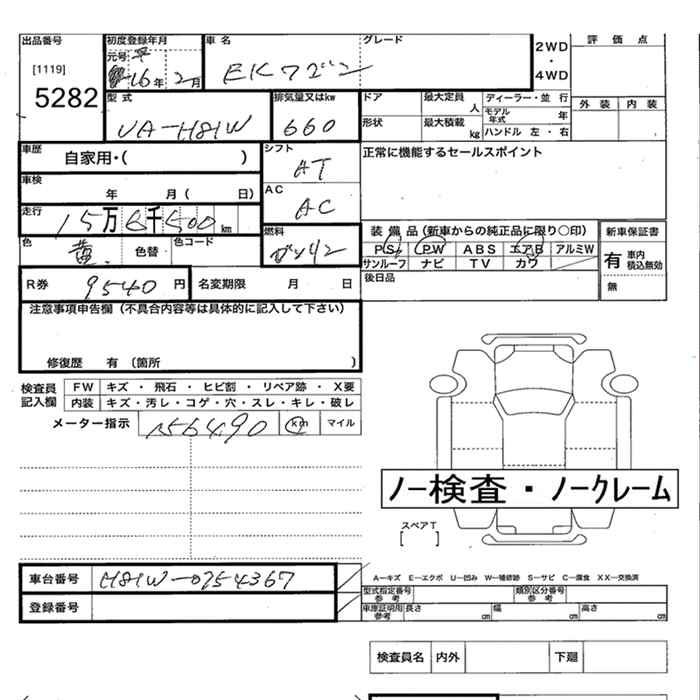 出品番号
[1119]
5282
初度登録年月
元号 平
16年2月
車名
EKワゴン
グレード
2WD
・
4WD
評価点
外装 内装
型式
UA-H81W
排気量又はkw
660
ドア
形状
最大定員 人
最大積載 kg
ディーラー・並行
モデル年式 年
ハンドル 左・右
車歴
自家用・( )
シフト
AT
正常に機能するセールスポイント
車検
年 月( 日)
AC
AC
走行
15万6千500 km
色
黄
色替
色コード
燃料
ガソリン
装備品(新車からの純正品に限り〇印)
PS PW ABS エアB アルミW
サンルーフ ナビ TV カワ
後日品
新車保証書
有 車内積込無効
無
R券 9540 円
名変期限 月 日
注意事項申告欄(不具合内容等は具体的に記入して下さい)
修復歴 有 (箇所 )
検査員記入欄
FW キズ・飛石・ヒビ割・リペア跡・X要
内装 キズ・汚レ・コゲ・穴・スレ・キレ・破レ
メーター指示 156490 km マイル
ノー検査・ノークレーム
スペアT
[ ]
車台番号 H81W-0754367
登録番号
A—キズ E—エクボ U—凹み W—補修跡 S—サビ C—腐食 XX—交換済
型式指定番号参考
類別区分番号参考
車庫証明用参考 長さ cm 幅 cm 高さ cm
検査員名 内外 下廻